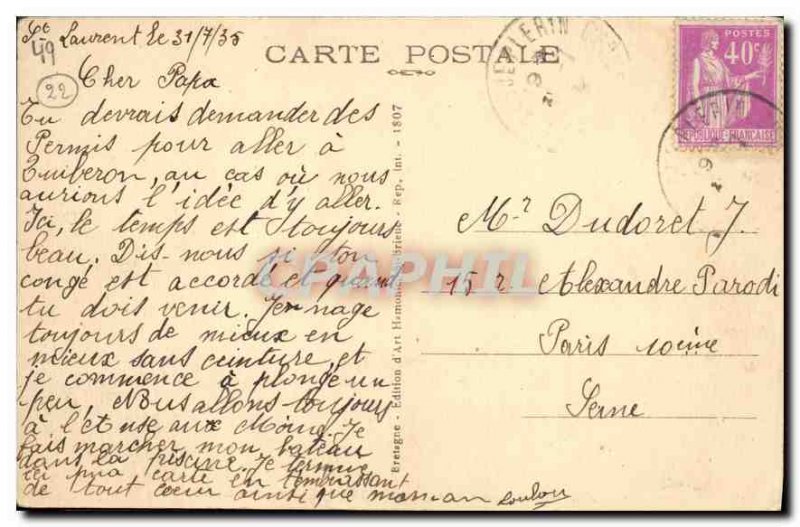 St Laurent le 31/7/35
49
22
CARTE POSTALE
Cher Papa
Tu devrais demander des
Permis pour aller à
Quiberon, au cas où nous
aurions l'idée d'y aller.
Ici, le temps est toujours
beau. Dis-nous si ton
congé est accordé et quand
tu dois venir. Je nage
toujours de mieux en
mieux sans ceinture, et
je commence à plonger un
peu, Nous allons toujours
à l'étuse aux Moing. Je
fais marcher mon bateau
dans la piscine. Je termine
ici ma carte en t'embrassant
de tout cœur ainsi que maman Loulou
Bretagne - Edition d'Art Hamonic - Rep. Int. - 1807
POSTES
40c
REPUBLIQUE FRANÇAISE
Mr Dudoret J.
15 r. Alexandre Parodi
Paris 10ème
Seine
CPAPHIL